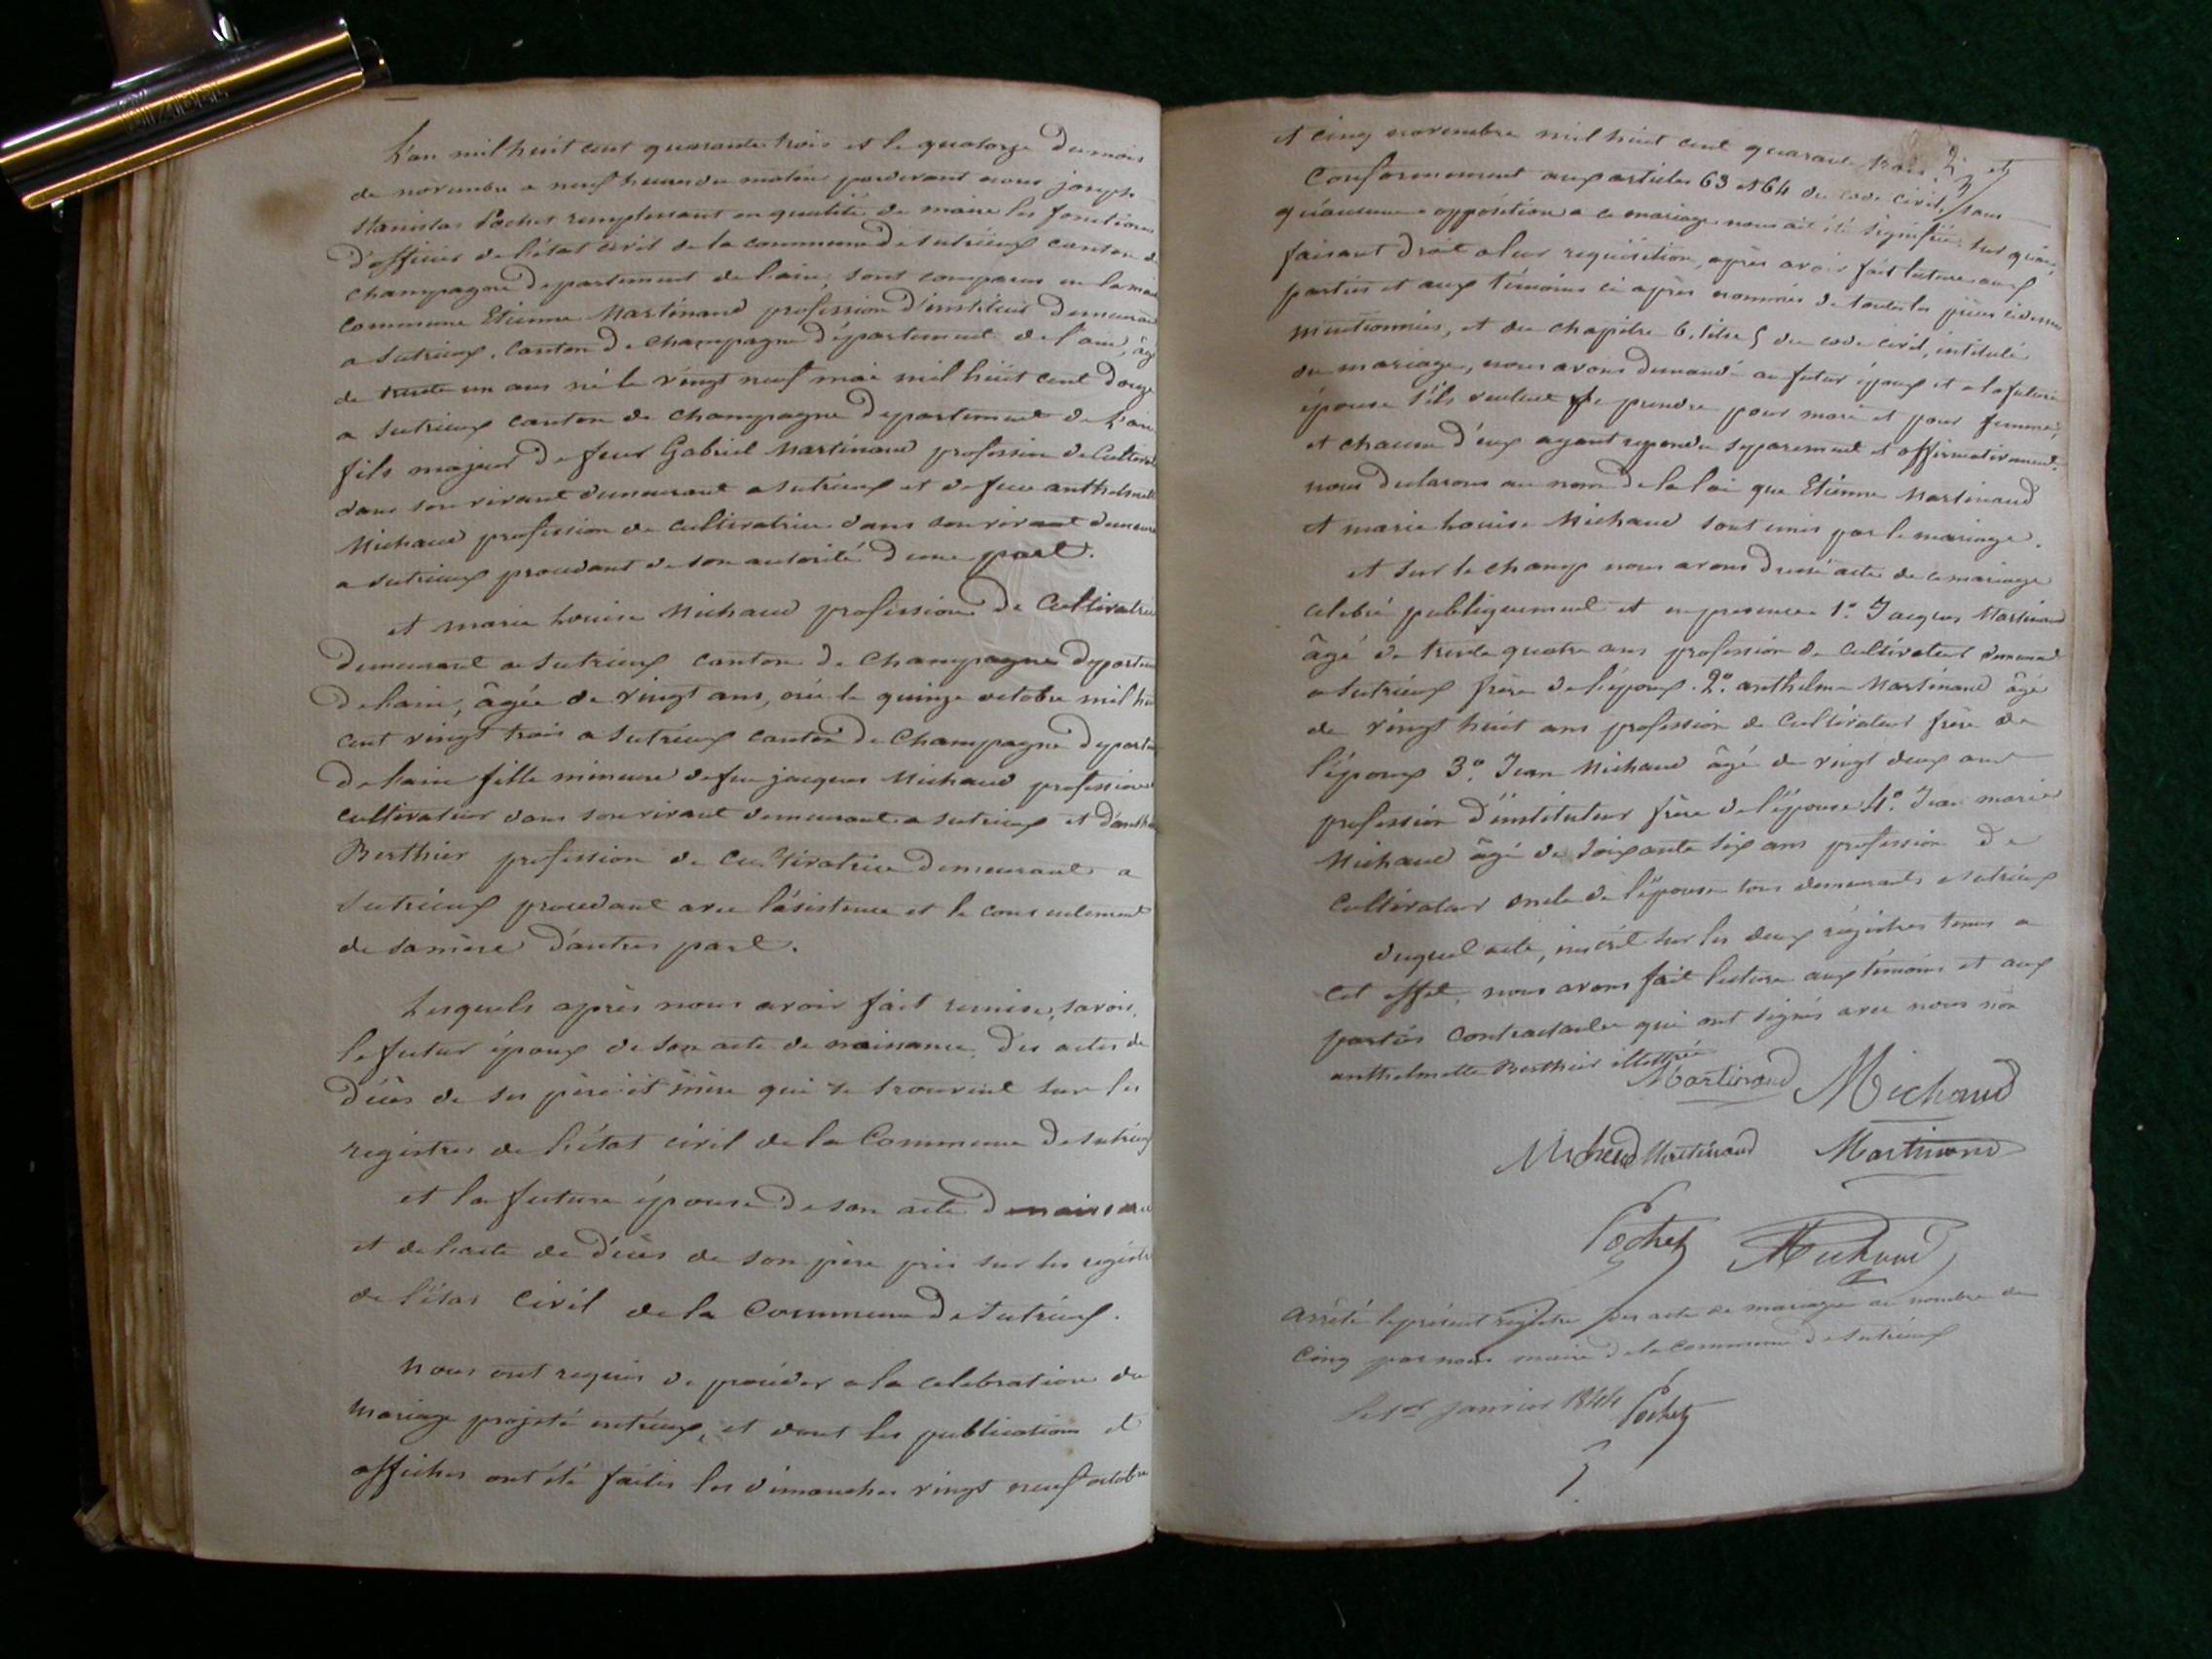 L'an mil huit cent quarante trois et le quatorze du mois
de novembre a neuf heures du matin pardevant nous joseph
stanislas Pochet remplissant en qualité de maire les fonctions
d'officier de l'état civil de la commune de sutrieux canton de
champagne departement de l'ain, sont comparus en la mai
commune Etienne Martinand profession d'instituteur demeurant
a sutrieux, canton de champagne département de l'ain, âgé
de trente un ans né le vingt neuf mai mil huit cent douze
a sutrieux canton de champagne departement de l'ain
fils majeur de feu Gabriel Martinand profession de Cultivat
dans son vivant demeurant a sutrieux et de feue anthelmette
Michaud profession de cultivatrice dans son vivant demeura
a sutrieux procedant de son autorité d'une part.
et marie Louise Michaud profession de Cultivatrice
demeurant a sutrieux canton de champagne departem
de l'ain, âgée de vingt ans, née le quinze octobre mil hui
cent vingt trois a sutrieux canton de champagne departe
de l'ain fille mineure de feu jacques Michaud profession
cultivateur dans son vivant demeurant a sutrieux et d'anthe
Berthier profession de cultivatrice demeurant a
sutrieux procedant avec l'asistence et le consentement
de sa mère d'autres part.
Lesquels après nous avoir fait remise, savoir,
le futur époux de son acte de naissance, des actes de
décès de ses père et mère qui se trouvent sur les
régistres de l'état civil de la Commune de sutrieux
et la future épouse de son acte de naissance
et de l'acte de décès de son père pris sur les régistr
de l'état civil de la Commune de sutrieux.
Nous ont requis de procéder a la celebration du
mariage projeté entr'eux, et dont les publications et
affiches ont été faites les dimanches vingt neuf octobre
et cinq novembre mil huit cent quarante trois, et
Conformement aux articles 63 et 64 du code civil, sans
qu'aucune opposition a ce mariage nous ait été signifiée
faisant droit a leur requisition, après avoir fait lecture aux
parties et aux témoins ci après nommés de toutes les pièces cidessus
mentionnées, et du chapitre 6, titre 5 du code civil, intitulé
du mariage, nous avons demandé au futur époux et a la future
épouse s'ils veulent se prendre pour mari et pour femme,
et chacun d'eux ayant repondu separement et affirmativement
nous declarons au nom de la loi que Etienne Martinand
et marie Louise Michaud sont unis par le mariage.
et sur le champ nous avons dressé acte de ce mariage
celebré publiquement et en presence 1°. Jacques Martinand
âgé de trente quatre ans profession de cultivateur demeurant
a sutrieux frère de l'époux. 2°. anthelme Martinand âgé
de vingt huit ans profession de cultivateur frère de
l'époux 3°. Jean Michaud âgé de vingt deux ans
profession d'instituteur frère de l'épouse 4°. Jean marie
Michaud âgé de soixante six ans profession de
cultivateur oncle de l'épouse tous demeurants a sutrieux
duquel acte, inscrit sur les deux régistres tenus a
cet effet, nous avons fait lecture aux témoins et aux
parties contractantes qui ont signés avec nous non
anthelmette Berthier illettrée
Martinand Michaud
Michaud Martinand Martinand
Pochet Michaud
Arrêté le présent registre des acte de mariage au nombre de
cinq par nous maire de la commune de sutrieux
le 1er janvier 1844 Pochet